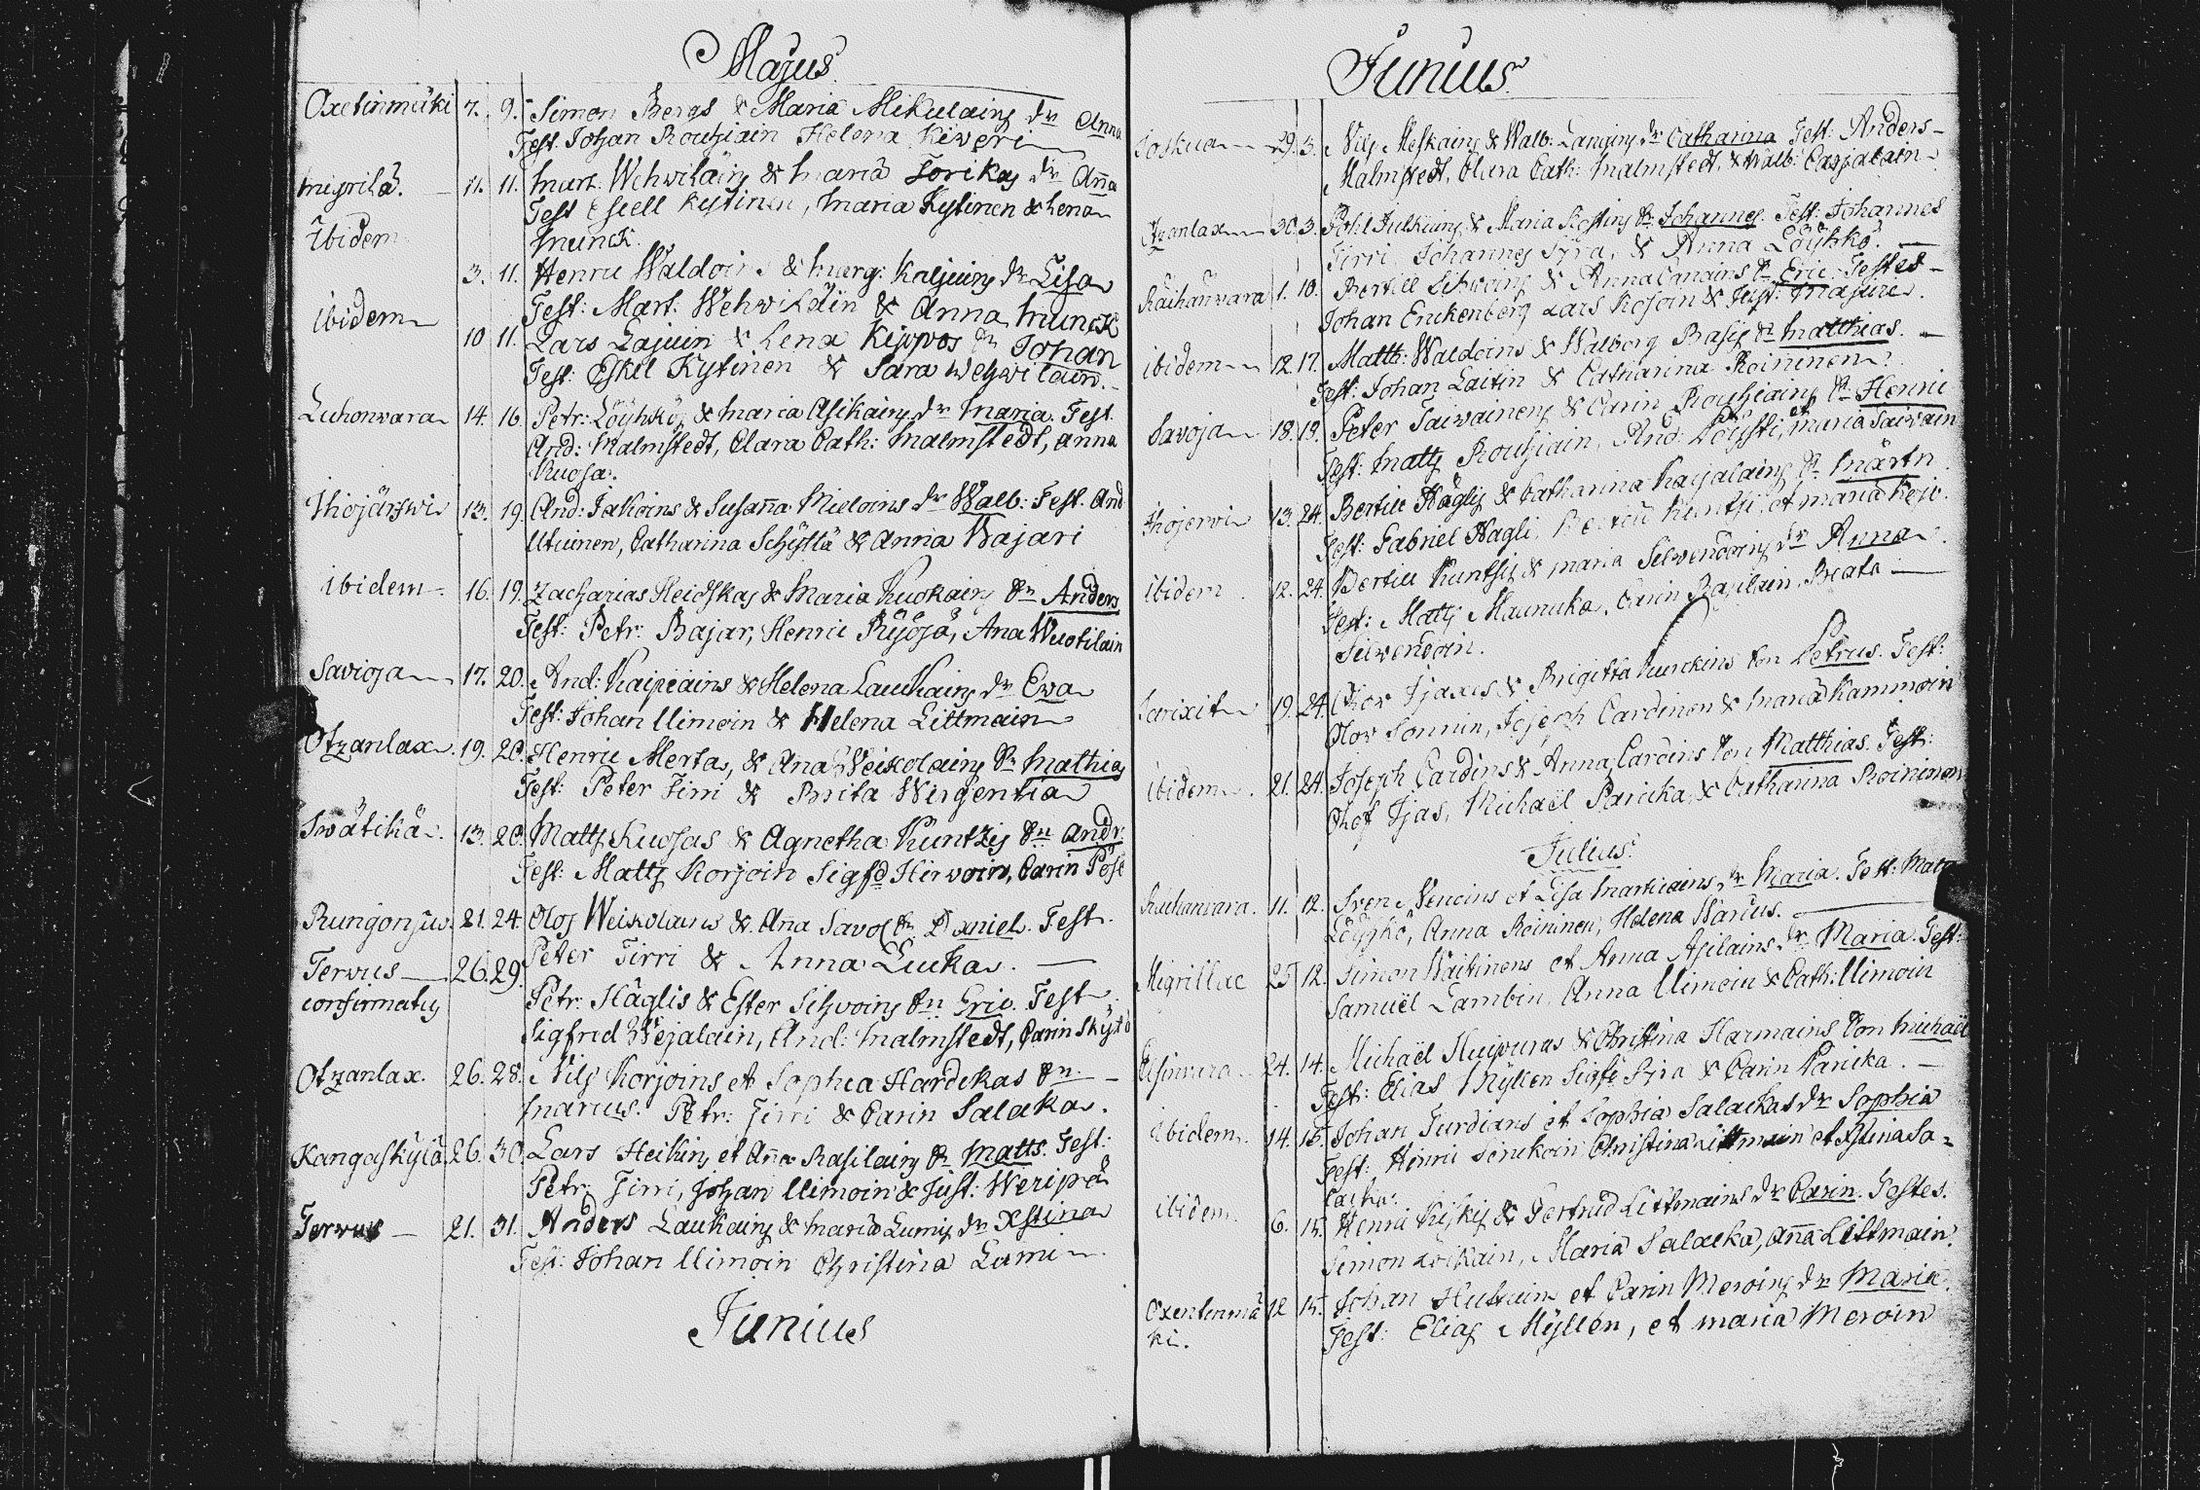 Majus
Oxetinmäki 7. 9. Simon Bergs & Maria Mikulains dr Anna
Test. Johan Rouhiain Helena Kiweri
Migrilä. 11. 11. Mart. Wehwiläins & Maria Torikas dr Aña
Test Eskell Kytinen, Maria Kytinen & Lena
Ibidem
Munck.
3. 11. Henric Waldoins & Marg: Kaljuins dr Lisa
Test: Mart. Wehwiläin & Anna Munck
ibidem
10 11. Lars Lajuin & Lena Kippos sn Johan
Test: Eskil Kytinen & Sara Wehwiläin.
Luhonvara 14. 16. Petr: Löyhköj & Maria Asikains dr Maria. Test
And: Malmstedt, Clara Cath: Malmstedt, Anna
Kuosa.
Ihojärwi 13. 19. And: Jakoins & Susaña Mieloins dr Walb: Test. And
Utuinen, Catharina Schyttä & Anna Bajari
ibidem 16. 19. Zacharias Heidskas & Maria Kuokains sn Anders
Test: Petr. Bajar, Henric Ryöjä, Ana Wuotilain
Savioja 17. 20. And: Kaipiains & Helena Laukains dr Ewa
Test: Johan Uimoin & Helena Littmain
Otzanlax. 19. 20. Henric Mertas, & Ana Weikolains sn Mathias
Test: Peter Jirri & Brita Wirgentia
13. 20. Matts Kuosas & Agnetha Kuntzis sn Andr.
Test: Matts Korjoin Sigfd Hirwoin, Carin Pöse
Rungonjuv. 21. 24. Olof Weikolains & Aña Savol sn Daniel. Test.
Peter Jirri & Anna Luka.
Terwus 26. 29.
confirmatus
Petr. Häglis & Ester Silvoins sn Eric. Test
Sigfrid Wejalain, And: Malmstedt, Carin Skyttä
Otzanlax. 26. 28. Nils Korjoins et Sophia Hardikas sn
Marcus. Petr: Jirri & Carin Salaka.
Kangaskylä 26. 30. Lars Heikins et Aña Rasilains sn Matts. Test:
Petr: Jirri, Johan Uimoin & Just: Weripä
Terwus 21. 31. Anders Laukains & Maria Lumis dr Xstina
Test: Johan Uimoin Christina Lumi
Junius
Junius
Joskua 29. 3. Nils Meskains & Walb: Langins dr Catharina Test: Anders
Malmstedt, Clara Cath: Malmstedt, & Walb: Carjalain
Otzanlax 30. 3. Pohl Pulkuins & Maria Kostins sn Johannes. Test: Johannes
Jirri, Johannes Syrä, & Anna Löyhkö.
Räihänvara 1. 10. Bertill Silwoins & Anna sn Eric. Testes
Johan Enckenberg Lars Kosoin & Just: Majurer.
ibidem 12. 17. Matth: Waldoins & Walborg Rasis sn Matthias.
Test: Johan Laitin & Catharina Roininen.
Savoja 18. 19. Peter Taiwainens & Carin Rouhiains sn Henric
Test: Matts Rouhiain, And: Löysti, et Maria Taiwain
Ihojerwi 13. 24. Bertill Häglis & Catharina Karjalains sn Mårtn
Test: Gabriel Hagli, Bertill Kuntsi, et Maria Kejo.
Ibidem 12. 24. Bertill Kuntsis & Maria Silwendoins dr Anna
Test: Matts Maunuka, Carin Rasilain, Beata
Silwendoin.
19. 24. Olow Ijaxes & Brigitta Kurckins son Petrus. Test:
Olov Sonnin, Joseph Cardinen & Maria Kammoin
ibidem 21. 24. Joseph Cardins & Anna Cardins son Matthias. Test:
Olof Ijas, Michaël Paricka, & Catharina Roininen
Julius.
Räihänvara. 11. 12. Sven Nencins et Lisa Martiains dr Maria. Test: Mats
Löyhkö, Anna Roininen, Helena Warius.
Migrillae 25 12. Simon Waitinens et Anna Asilains, dr Maria. Test:
Samuël Lambin, Anna Uimoin & Cath: Uimoin
24. 14. Michaël Huipuras & Christina Harmains son Michaël
Test: Elias Myllen Sigfr Syrä & Carin Paricka.
ibidem. 14. 15. Johan Turdians et Sophia Salackas dr Sophia
Test: Henric Sinckoin, Christina Littmain et Xstina Sa=
lacka.
ibidem. 6. 15. Henric Kiskis & Gertrud Littmains dr Carin. Testes.
Simon Loikain, Maria Salacka, Aña Littmain.
Oxentenmä 12 15. Johan Hultuins et Carin Meroins dr Maria.
ki.
Test: Elias Myllen, et Maria Meroin